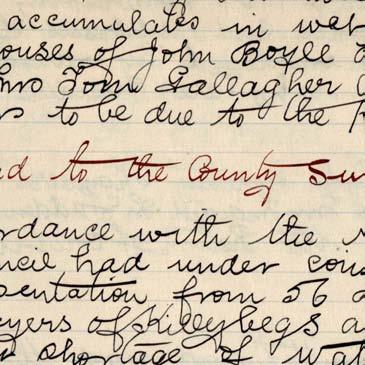 accumulates in wet
ouses of John Boyle
Mrs Tom Gallagher
s to be due to the
ed to the County Sur
rdance with the
ncil had under cons
sentation from 56
ayers of Killybegs a
shortage of wat